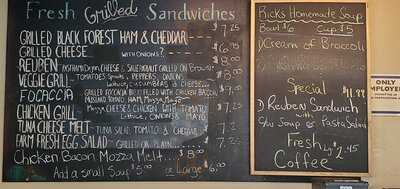 Fresh Grilled Sandwiches
GRILLED BLACK FOREST HAM & CHEDDAR
GRILLED CHEESE WITH ONIONS?
REUBEN PASTRAMI CHEESE & SAUERKRAUT GRILLED ON
VEGGIE GRILL TOMATOES SPROUTS, PEPPERS, ONIONS,
LETTUCE, CUCUMBERS & CHEESE
FOCACCIA GRILLED FOCACCIA BUTTERFLIED WITH CHICKEN BACON,
HAM, MOZZA, MAYO
CHICKEN GRILL CHEESE & CHICKEN WITH TOMATO,
LETTUCE, ONIONS & MAYO
TUNA CHEESE MELT TUNA SALAD, TOMATO, & CHEDDAR
FARM FRESH EGG SALAD GRILLED OR PLAIN
Chicken Bacon Mozza Melt $8.00
And a small Soup $5.00 or Large
Ricks Homemade Soup
Bowl $6 Cup $5
Cream of Broccoli
Special
Reuben Sandwich
with
Soup or Pasta Salad
Fresh
Coffee
ONLY